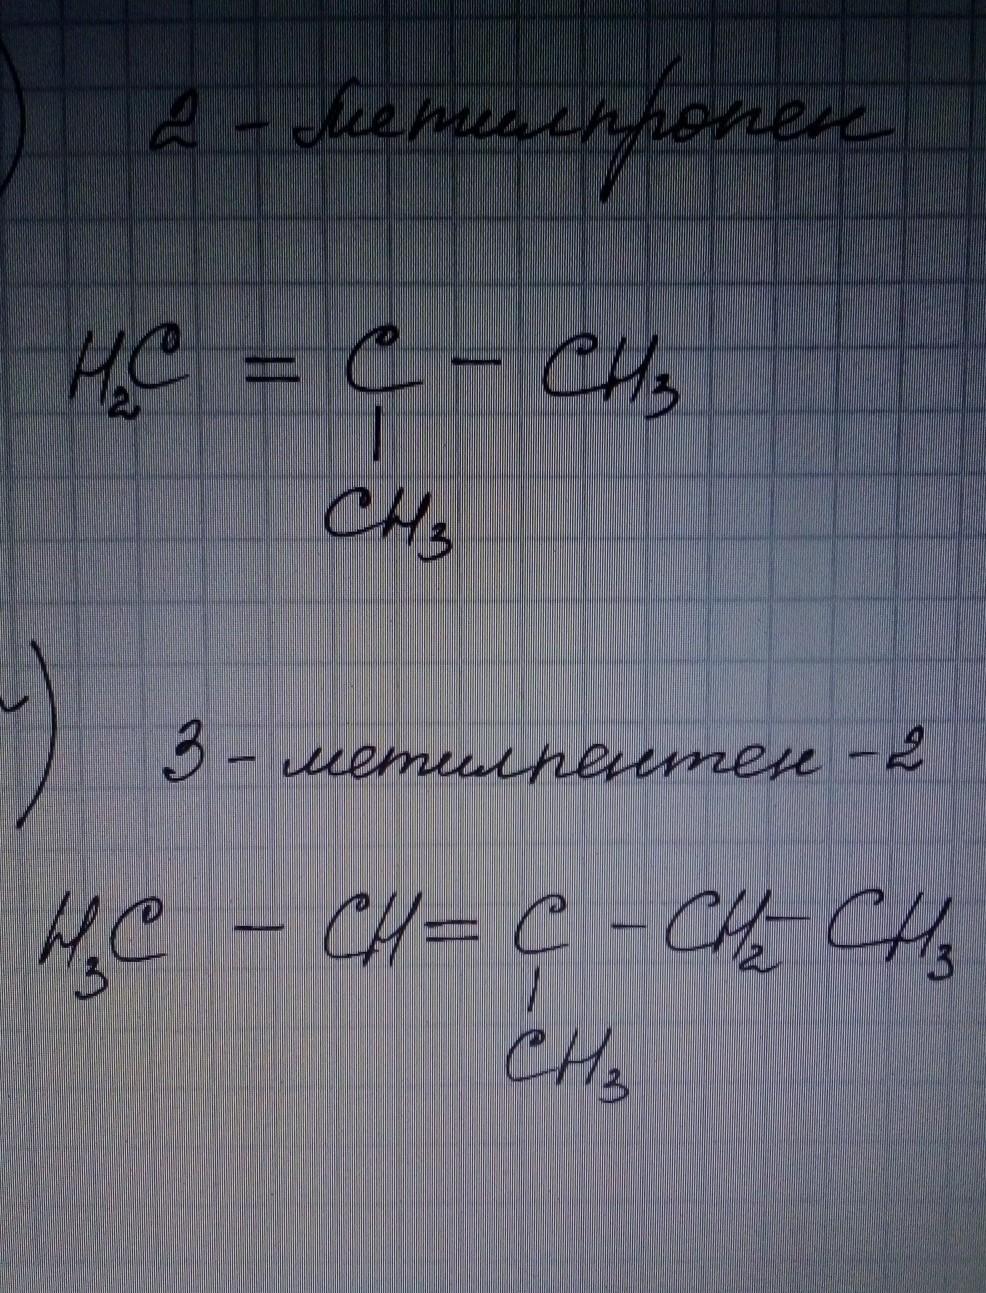 )
2 - Метилпропен
H₂C = C - CH₃
|
CH₃
)
3 - метилпентен - 2
H₃C - CH = C - CH₂ - CH₃
|
CH₃